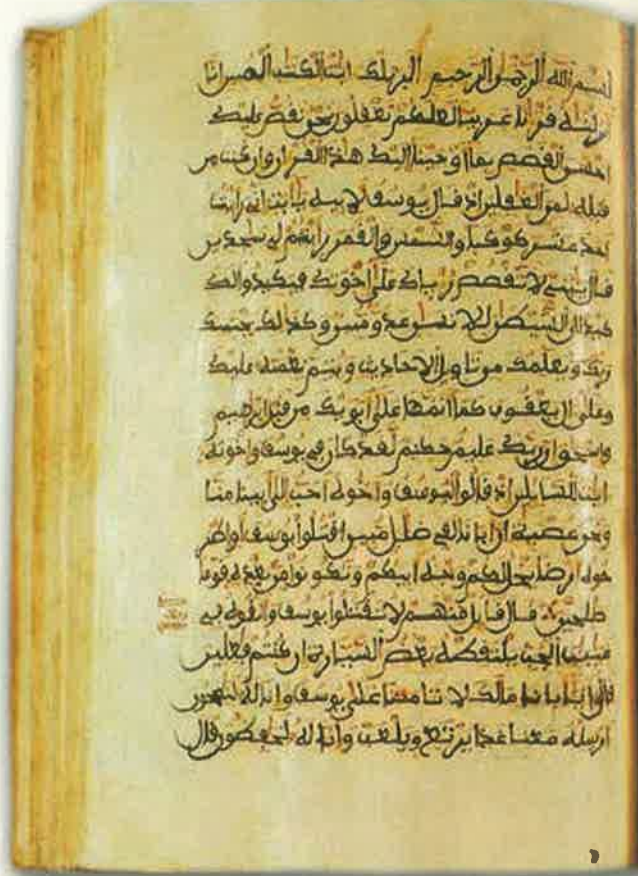 بسم الله الرحمن الرحيم الر تلك ايت الكتب المبين انا
انزلنه قرانا عربيا لعلكم تعقلون نحن نقص عليك
احسن القصص بما اوحينا اليك هذا القران وان كنت من
قبله لمن الغفلين اذ قال يوسف لابيه يابت اني رايت
احد عشر كوكبا والشمس والقمر رايتهم لي سجدين
قال يبني لا تقصص رءياك على اخوتك فيكيدوا لك
كيدا ان الشيطن للانسن عدو مبين وكذلك يجتبيك
ربك ويعلمك من تاويل الاحاديث ويتم نعمته عليك
وعلى ال يعقوب كما اتمها على ابويك من قبل ابرهيم
واسحق ان ربك عليم حكيم لقد كان في يوسف واخوته
ايت للسايلين اذ قالوا ليوسف واخوه احب الى ابينا منا
ونحن عصبة ان ابانا لفي ضلل مبين اقتلوا يوسف او اطر
حوه ارضا يخل لكم وجه ابيكم وتكونوا من بعده قوما
صلحين قال قايل منهم لا تقتلوا يوسف والقوه في
غيبت الجب يلتقطه بعض السيارة ان كنتم فعلين
قالوا يابانا مالك لا تامنا على يوسف وانا له لنصحون
ارسله معنا غدا يرتع ويلعب وانا له لحفظون قال